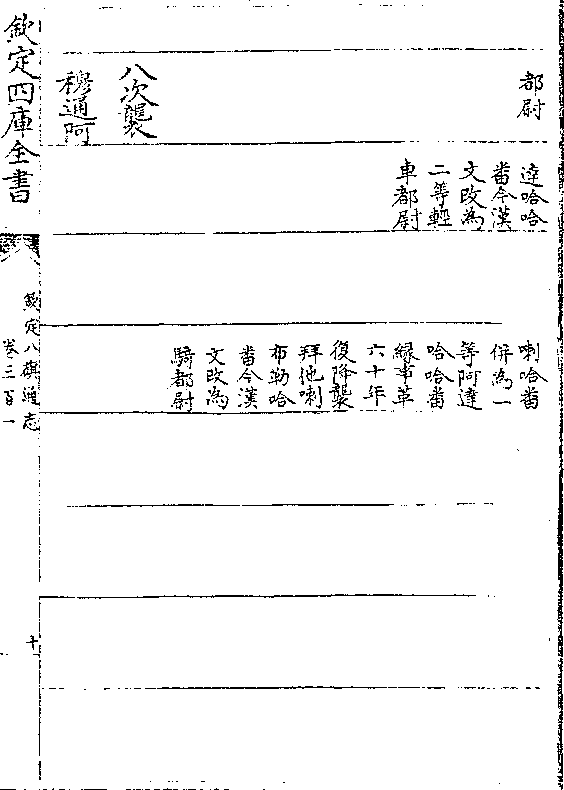 都尉
八次襲
穆通阿
達哈哈
番今漢
文改為
二等輕
車都尉
喇哈番
併為一
等阿達
哈哈番
緣事革
六十年
復降襲
拜他喇
布勒哈
番今漢
文改為
騎都尉
欽定四庫全書
欽定八旗通志
卷三百一
十